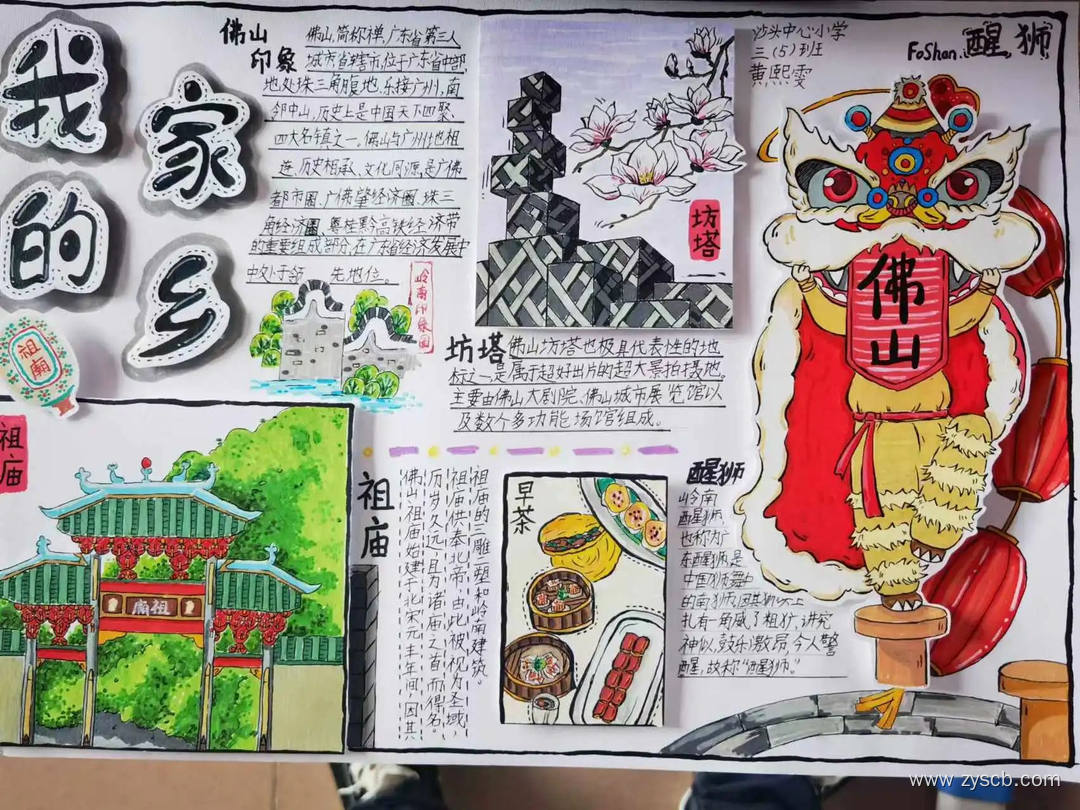 我的
家乡
佛山
印象
佛山,简称禅,广东省第三人
城市省辖市,位于广东省中部,
地处珠三角腹地,东接广州,南
邻中山,历史上是中国天下四聚、
四大名镇之一。佛山与广州地相
连、历史相承、文化同源,是广佛
都市圈、广佛肇经济圈、珠三
角经济圈、粤桂黔高铁经济带
的重要组成部分,在广东省经济发展中
中处于
先地位。
岭南印象园
坊塔
沙头中心小学
三(5)班
黄熙雯
FoShan.醒狮
佛山
祖庙
祖庙
祖廟
坊塔
佛山坊塔也极具代表性的地
标之一,是属于超好出片的超大景拍摄地,
主要由佛山大剧院、佛山城市展览馆以
及数个多功能场馆组成。
祖庙
佛山祖庙始建于北宋元丰年间,因其
历岁久远,且为诸庙之首而得名。
祖庙供奉北帝,由此被视为圣域,
祖庙的三雕二塑和岭南建筑。
早茶
醒狮
岭南
醒狮,
也称为广
东醒狮,是
中国狮舞中
的南狮,因其狮头上
扎有一角,威了粗犷,讲究
神似,鼓乐激昂,令人警
醒,故称“醒狮”。
www.zyscb.com